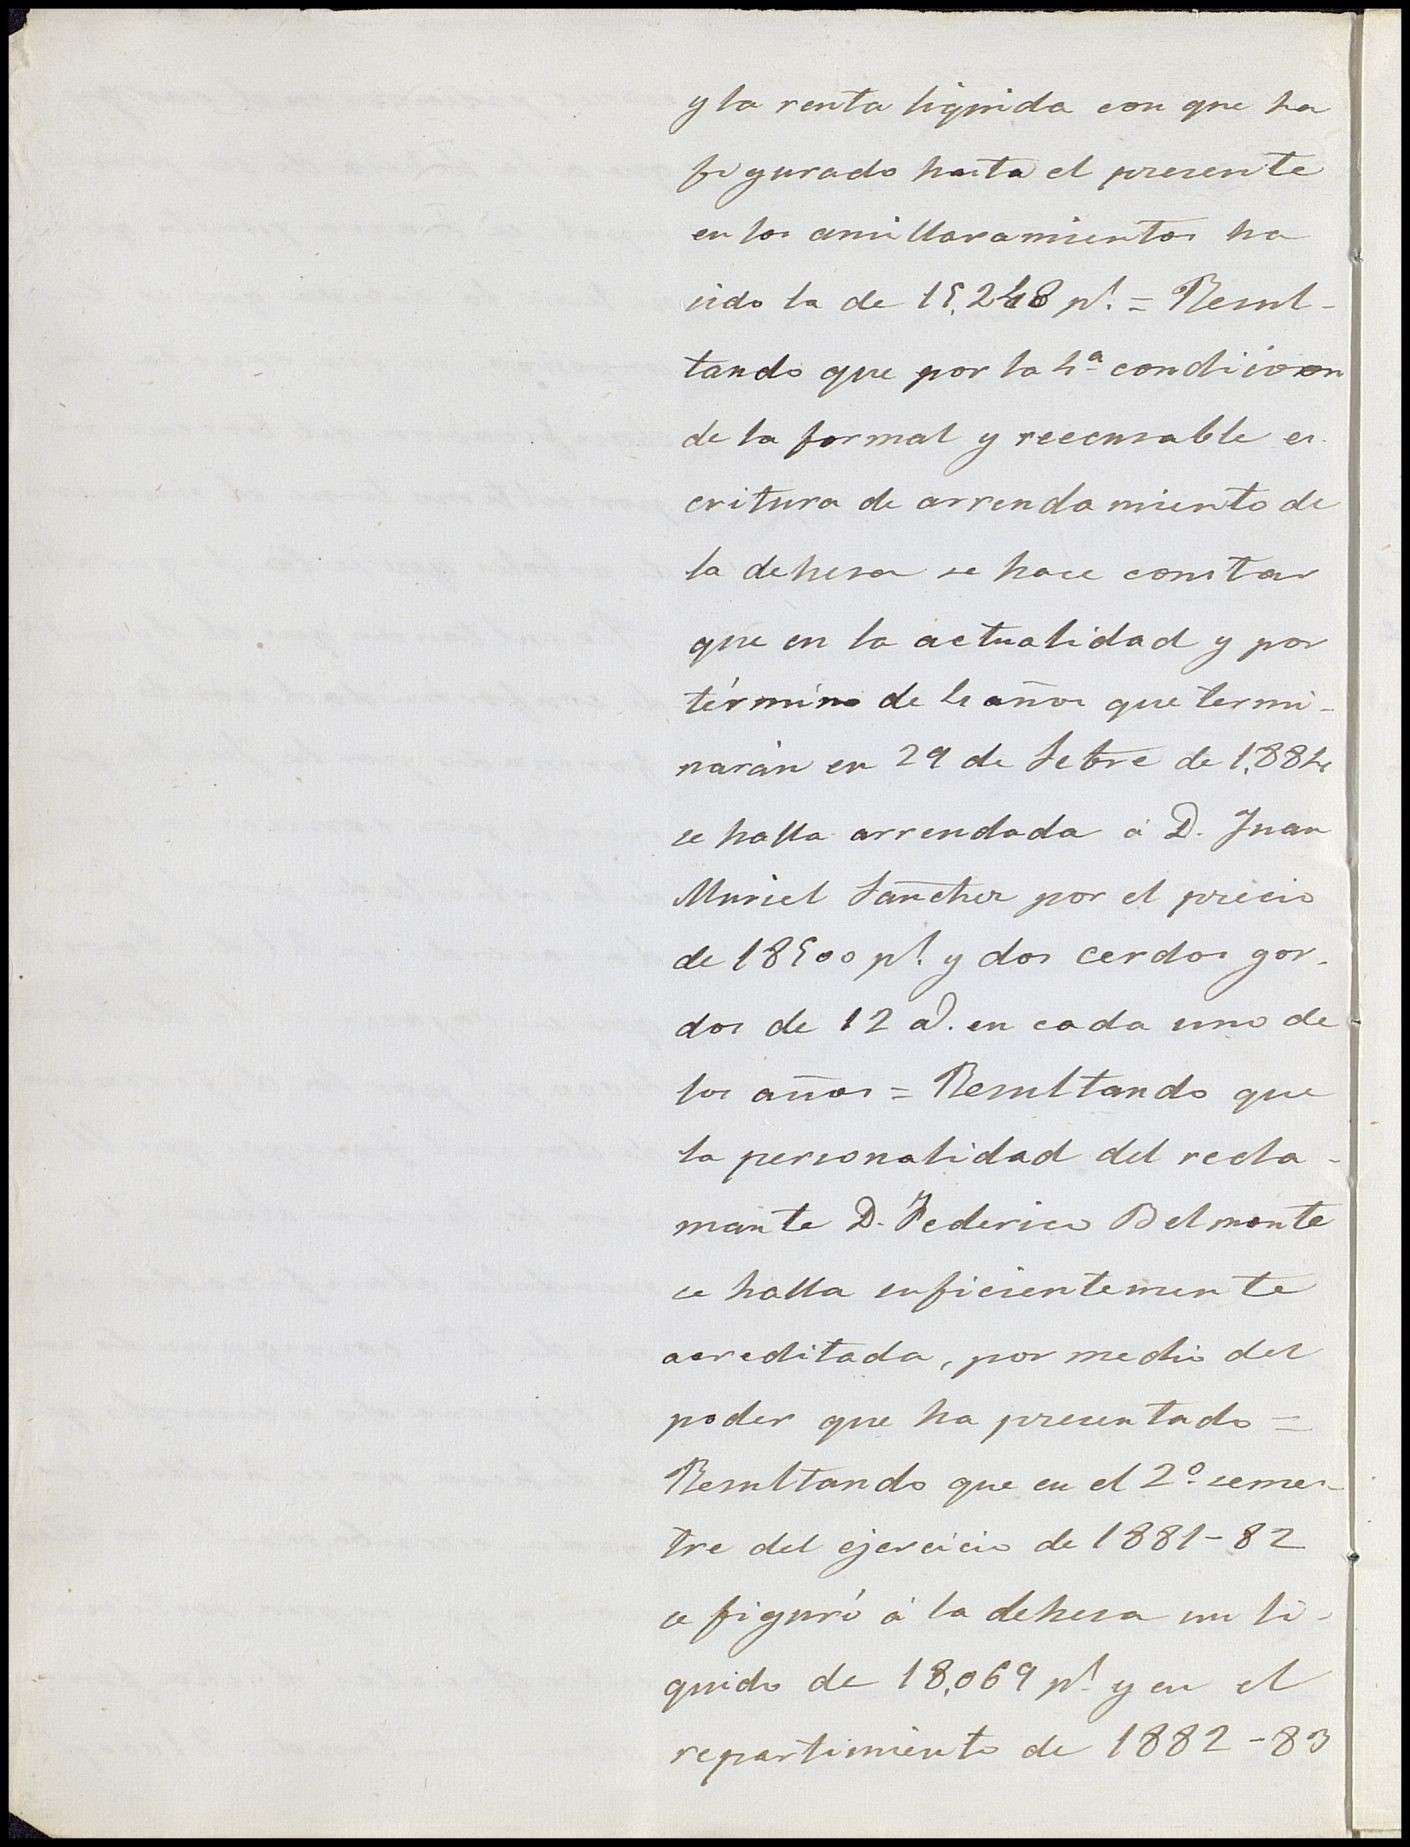 y la renta liquida con que ha
figurado hasta el presente
en los amillaramientos ha
sido la de 15,248 pts. = Resul-
tando que por la 4ª condicion
de la formal y reecusable es
critura de arrendamiento de
la dehesa se hace constar
que en la actualidad y por
término de 4 años que termi-
narán en 29 de Setbre de 1.884
se halla arrendada á D. Juan
Muriel Sanchez por el precio
de 18500 pts. y dos cerdos gor-
dos de 12 @. en cada uno de
los años = Resultando que
la personalidad del recla-
mante D. Federico Belmonte
se halla suficientemente
acreditada, por medio del
poder que ha presentado =
Resultando que en el 2º semes-
tre del ejercicio de 1881-82
se figuró á la dehesa un li-
quido de 18,069 pts y en el
repartimiento de 1882-83